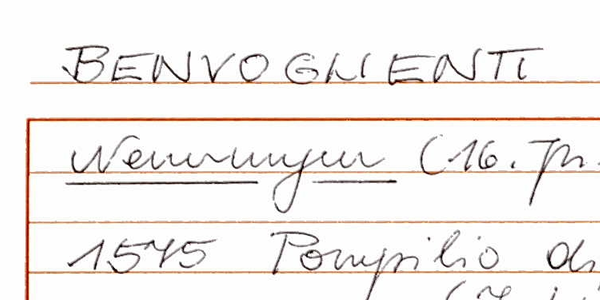 BENVOGLIENTI
Nennungen (16. Jh.
1545 Pompilio di